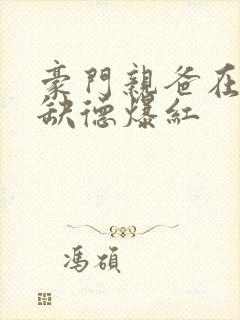 豪門親爸在
缺德爆紅
馮碩